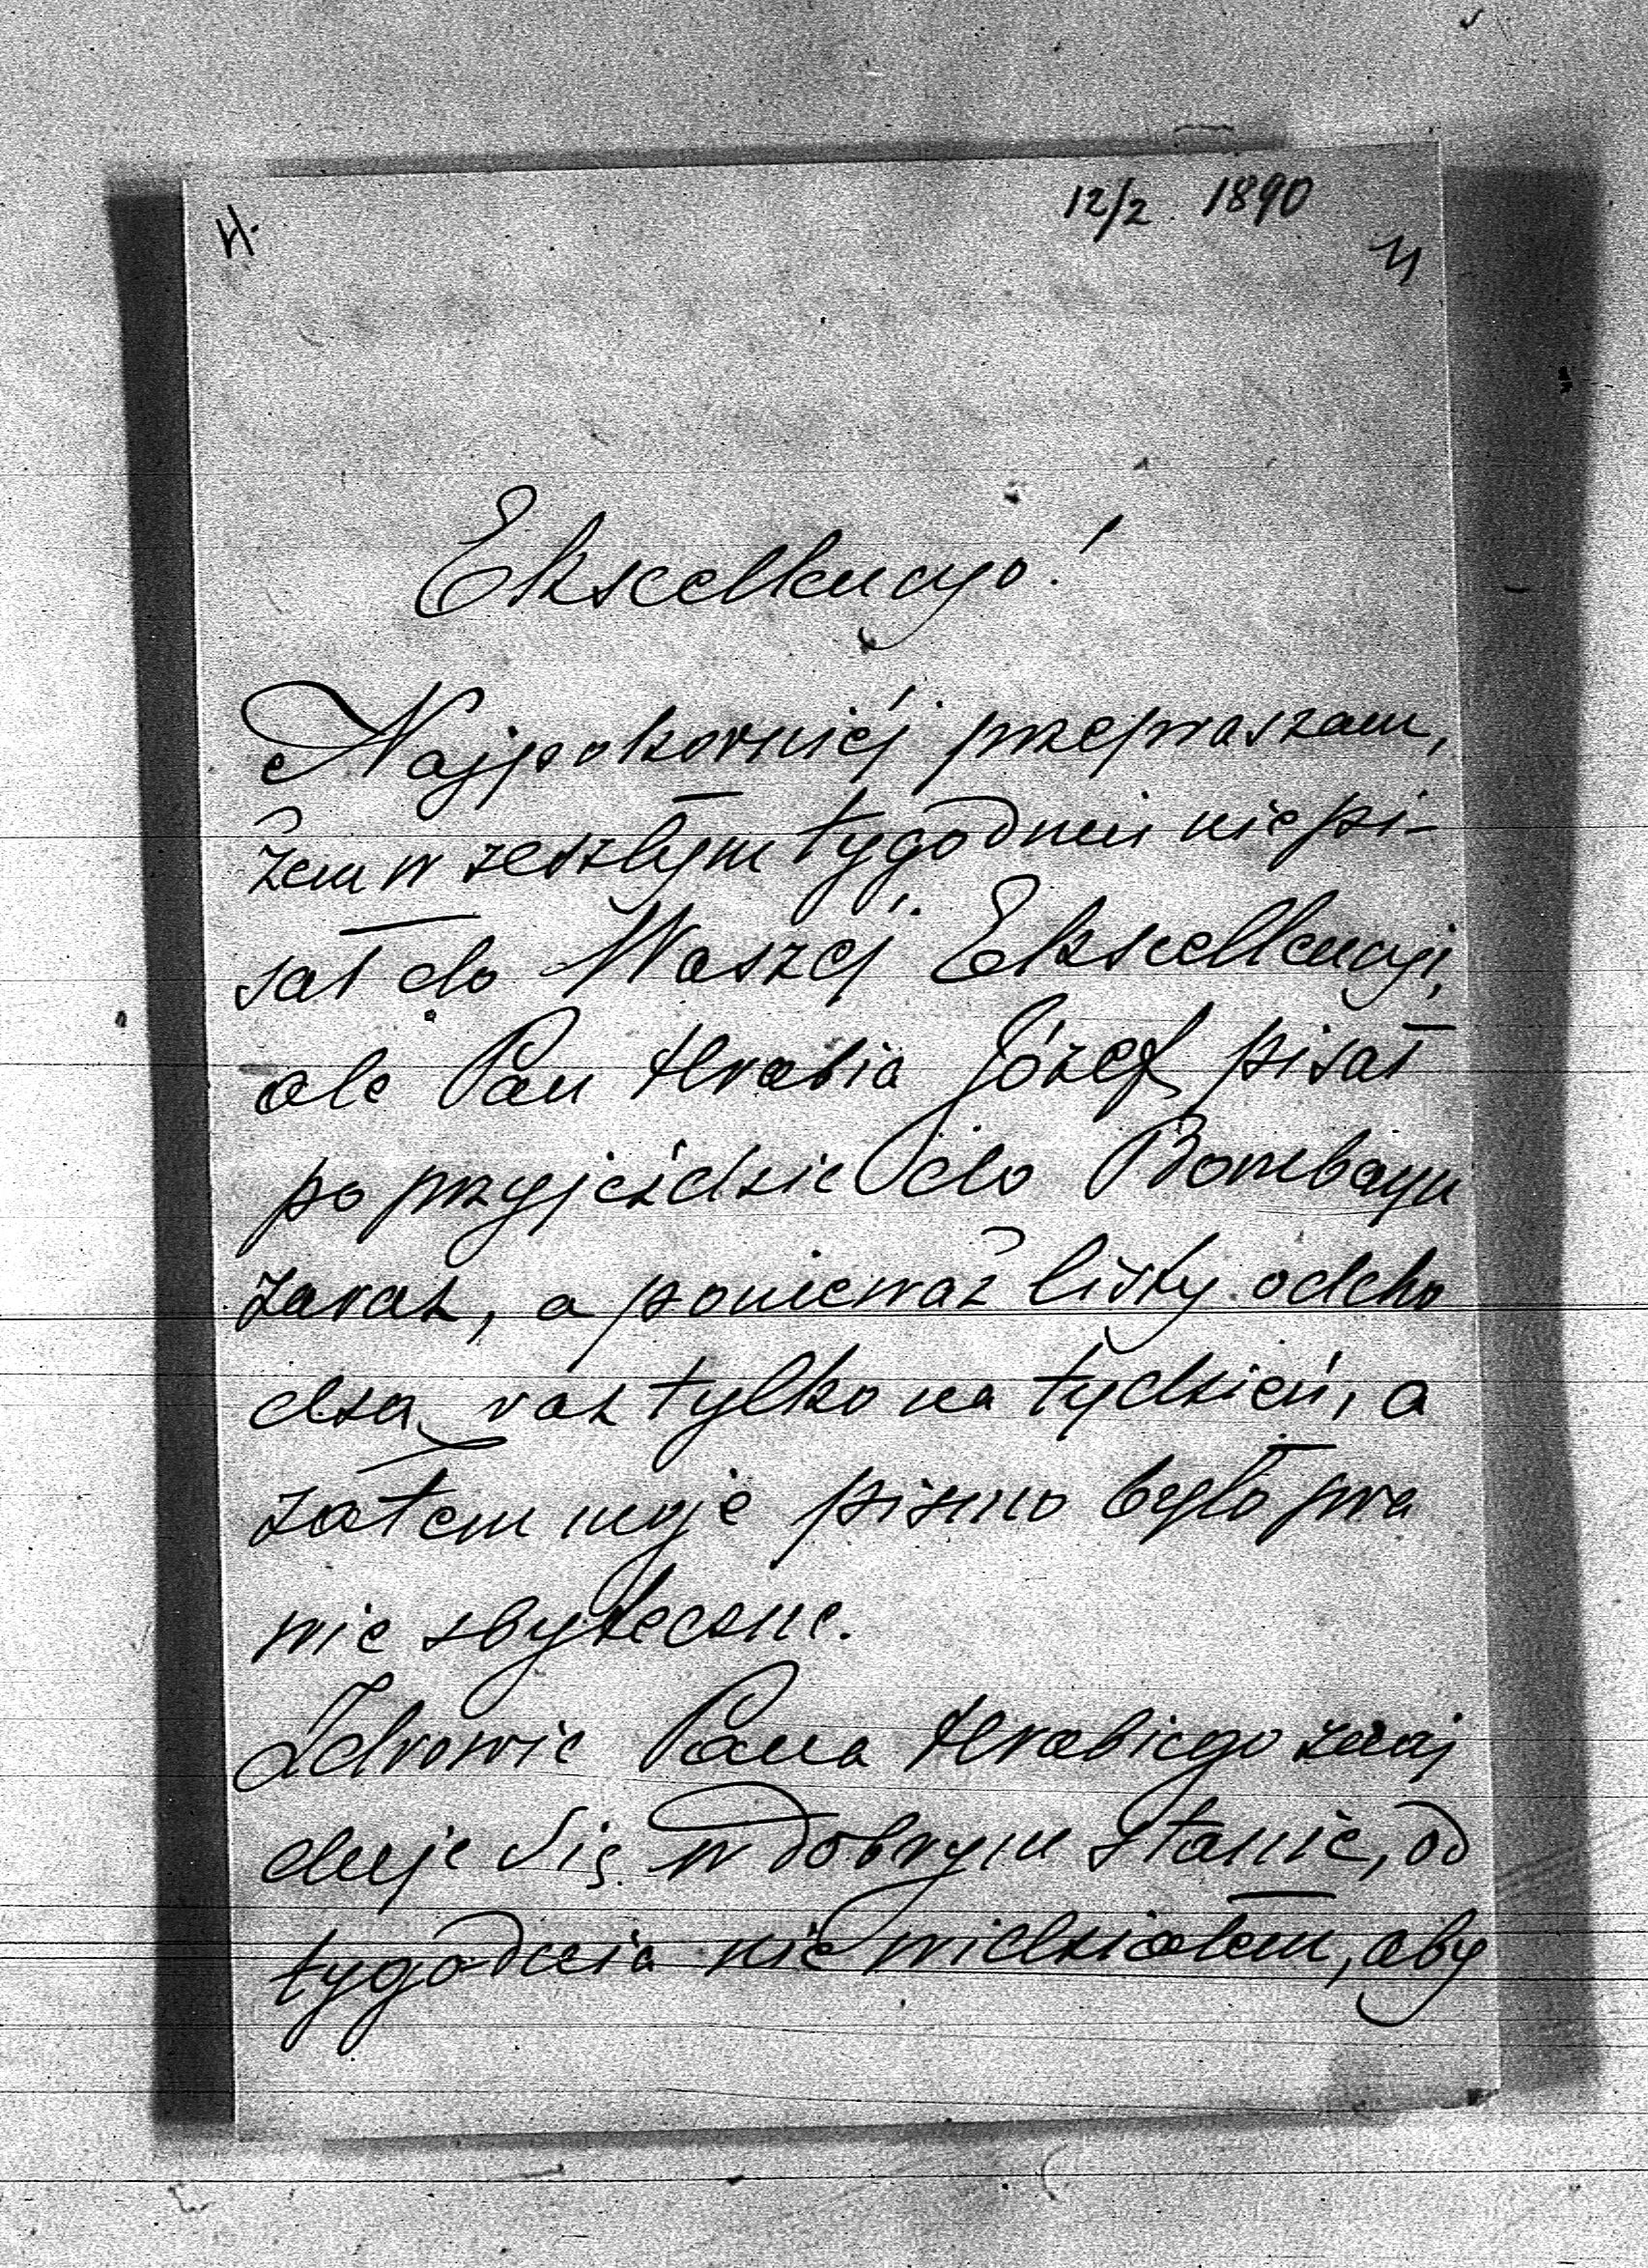 12/2. 1890
Ekscellencyo!
Najpokorniéj przepraszam,
żem w zeszłym tygodniu nie pi-
sał do Waszéj Ekscellencyi,
ale Pan Hrabia Józef pisał
po przyjeździe do Bombayu
zaraz, a ponieważ listy odcho
dzą raz tylko na tydzień, a
zatem moje pismo było pra
wie zbyteczne.
Zdrowie Pana Hrabiego znaj
duje się w dobrym stanie, od
tygodnia nie widziałem, aby